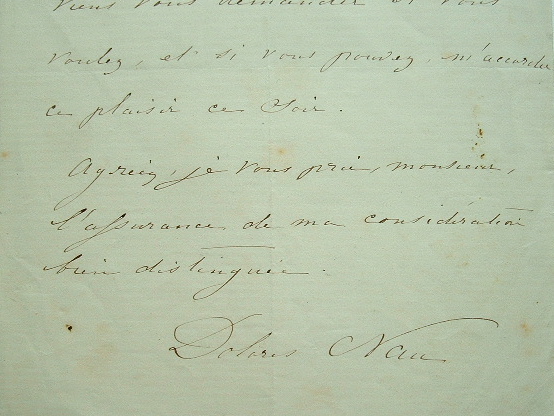 viens vous demander si vous
voulez, et si vous pouvez, m'accorder
ce plaisir ce soir.
Agréez, je vous prie, monsieur,
l'assurance de ma considération
bien distinguée.
Dolores Nau